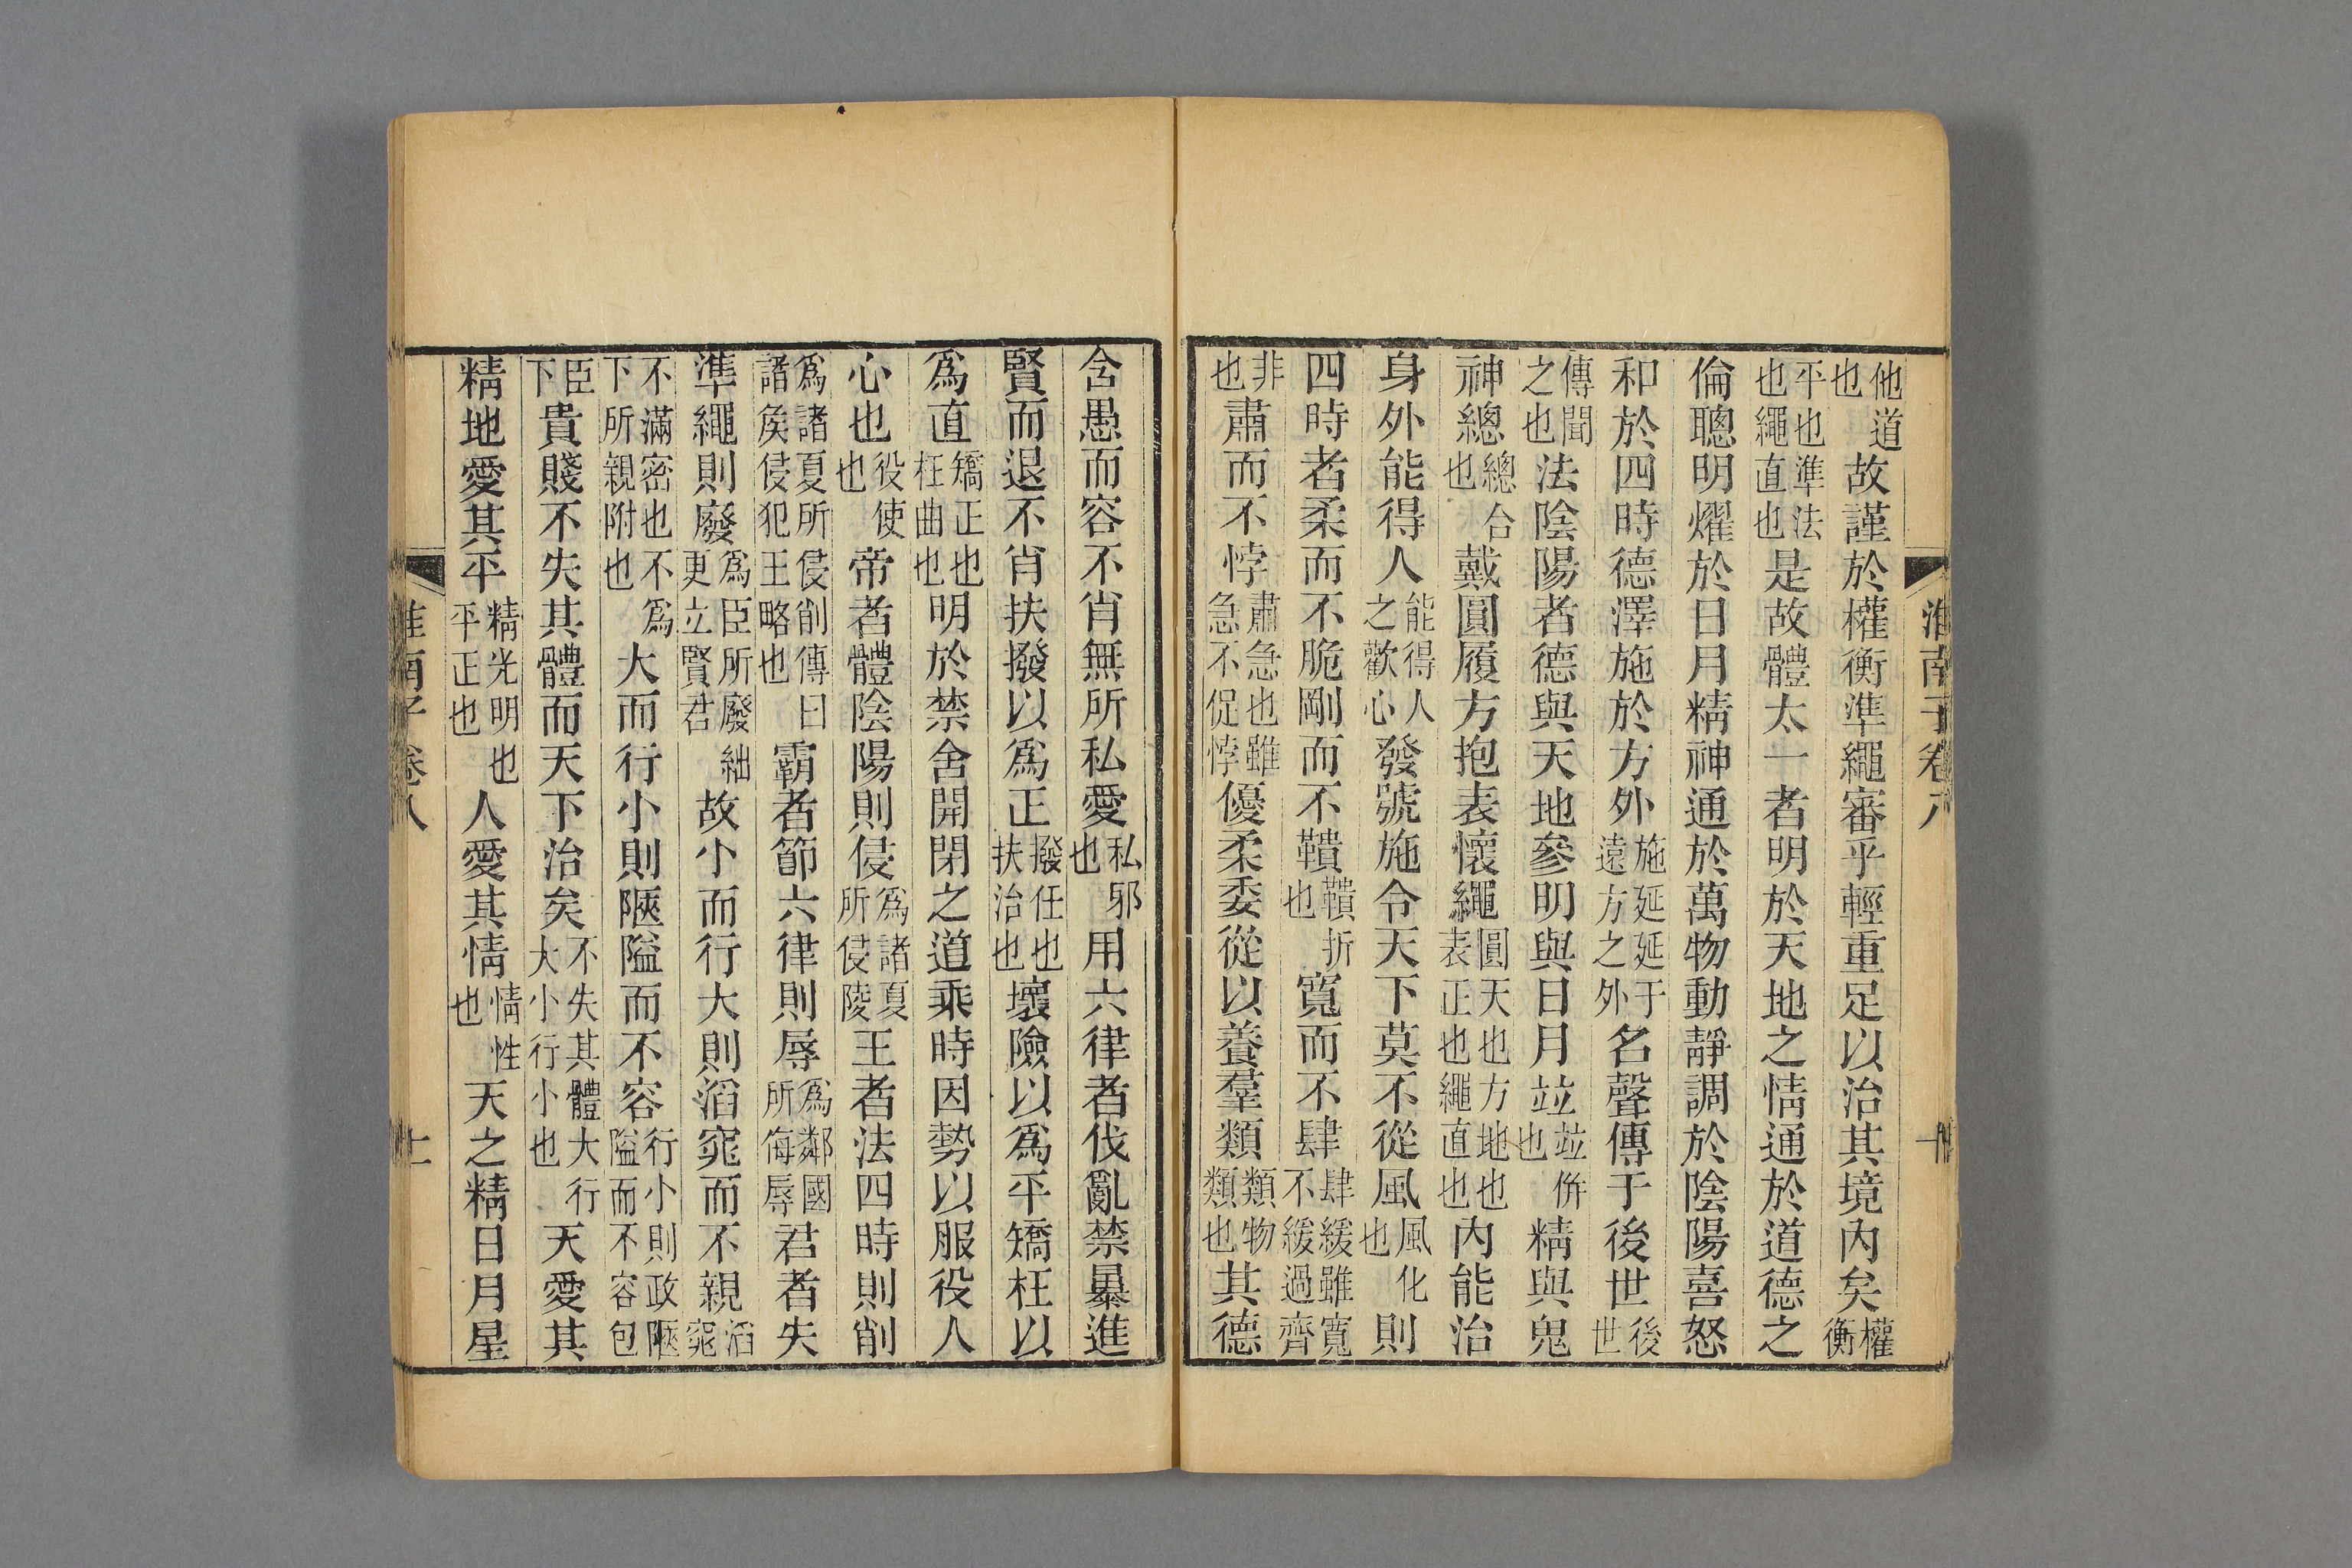 淮南子卷八
他道也故謹於權衡準繩審乎輕重足以治其境內矣權衡
平也準法也繩直也是故體太一者明於天地之情通於道德之
倫聰明燿於日月精神通於萬物動靜調於陰陽喜怒
和於四時德澤施於方外施延延于遠方之外名聲傳于後世後世
傳聞之也法陰陽者德與天地參明與日月竝竝倂也精與鬼
神總總合也戴圓履方抱表懷繩圓天也方地也表正也繩直也內能治
身外能得人能得人之歡心發號施令天下莫不從風風化也則
四時者柔而不脆剛而不鞼鞼折也寬而不肆肆緩雖寬不緩過齊
非也肅而不悖肅急也雖急不促悖優柔委從以養羣類類物類也其德
含愚而容不肖無所私愛私邪也用六律者伐亂禁暴進
賢而退不肖扶撥以爲正撥任也扶治也壞險以爲平矯枉以
爲直矯正也枉曲也明於禁舍開閉之道乘時因勢以服役人
心也役使也帝者體陰陽則侵爲諸夏所侵陵王者法四時則削
爲諸夏所侵削傳曰諸矦侵犯王略也霸者節六律則辱爲鄰國所侮辱君者失
準繩則廢爲臣所廢絀更立賢君故小而行大則滔窕而不親滔窕
不滿密也不爲下所親附也大而行小則陿隘而不容行小則政陿隘而不容包
臣下貴賤不失其體而天下治矣不失其體大行大小行小也天愛其
精地愛其平精光明也平正也人愛其情情性也天之精日月星
淮南子卷八